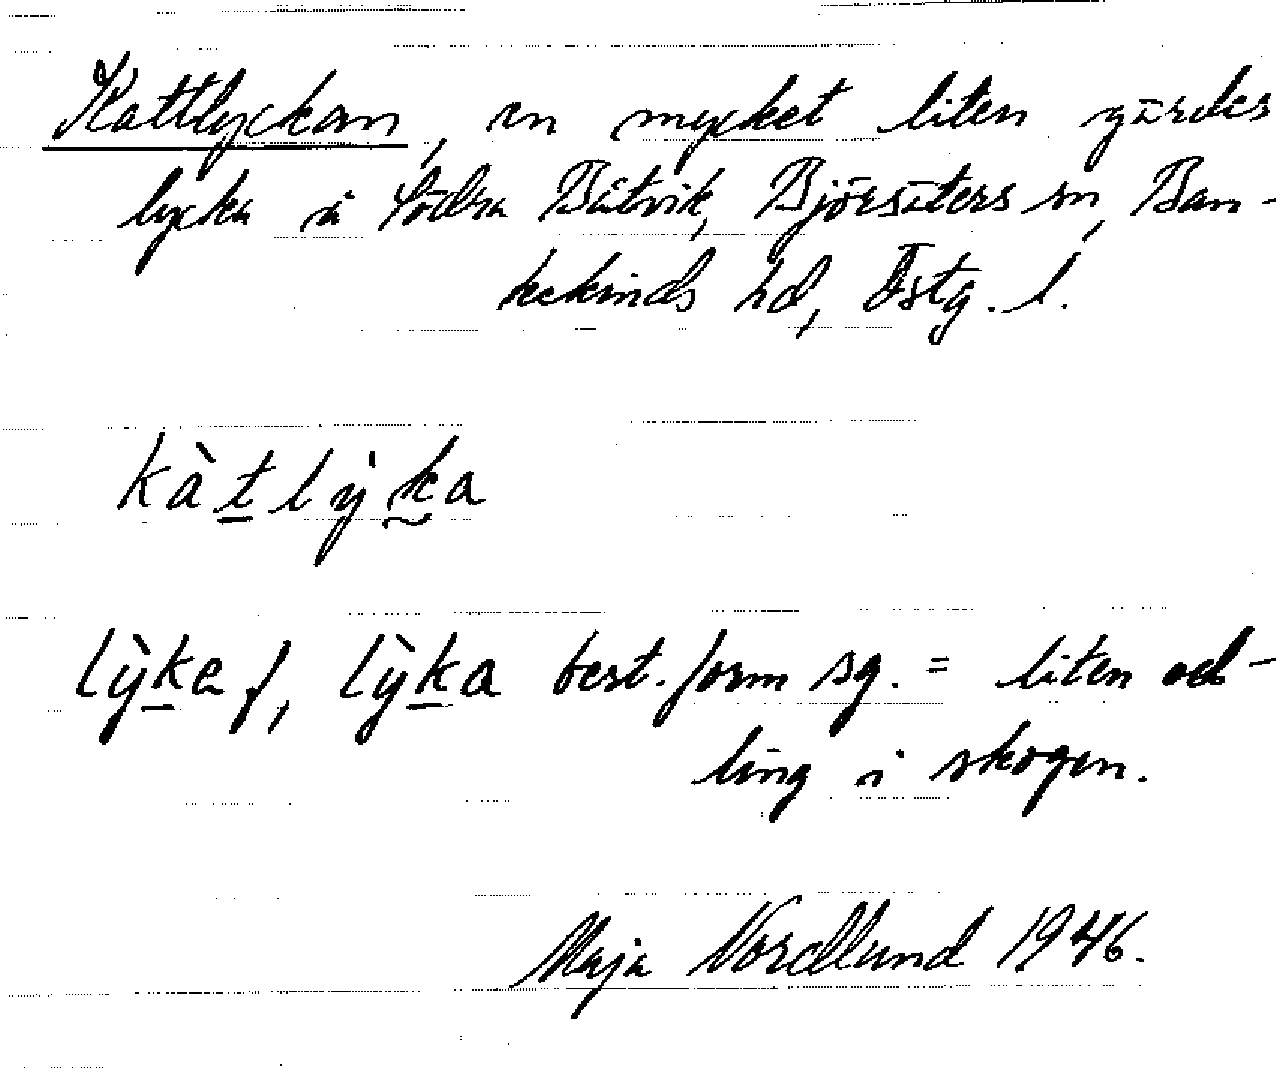 Kattlyckan, en mycket liten gärdes
lycka å Södra Båtvik, Björsäters sn, Ban-
kekinds hd, Östg. l.
kàt̲lỳk̰a
lỳk̲e f, lỳk̲a best. form sg. = liten od-
ling i skogen.
Maja Nordlund 1946.